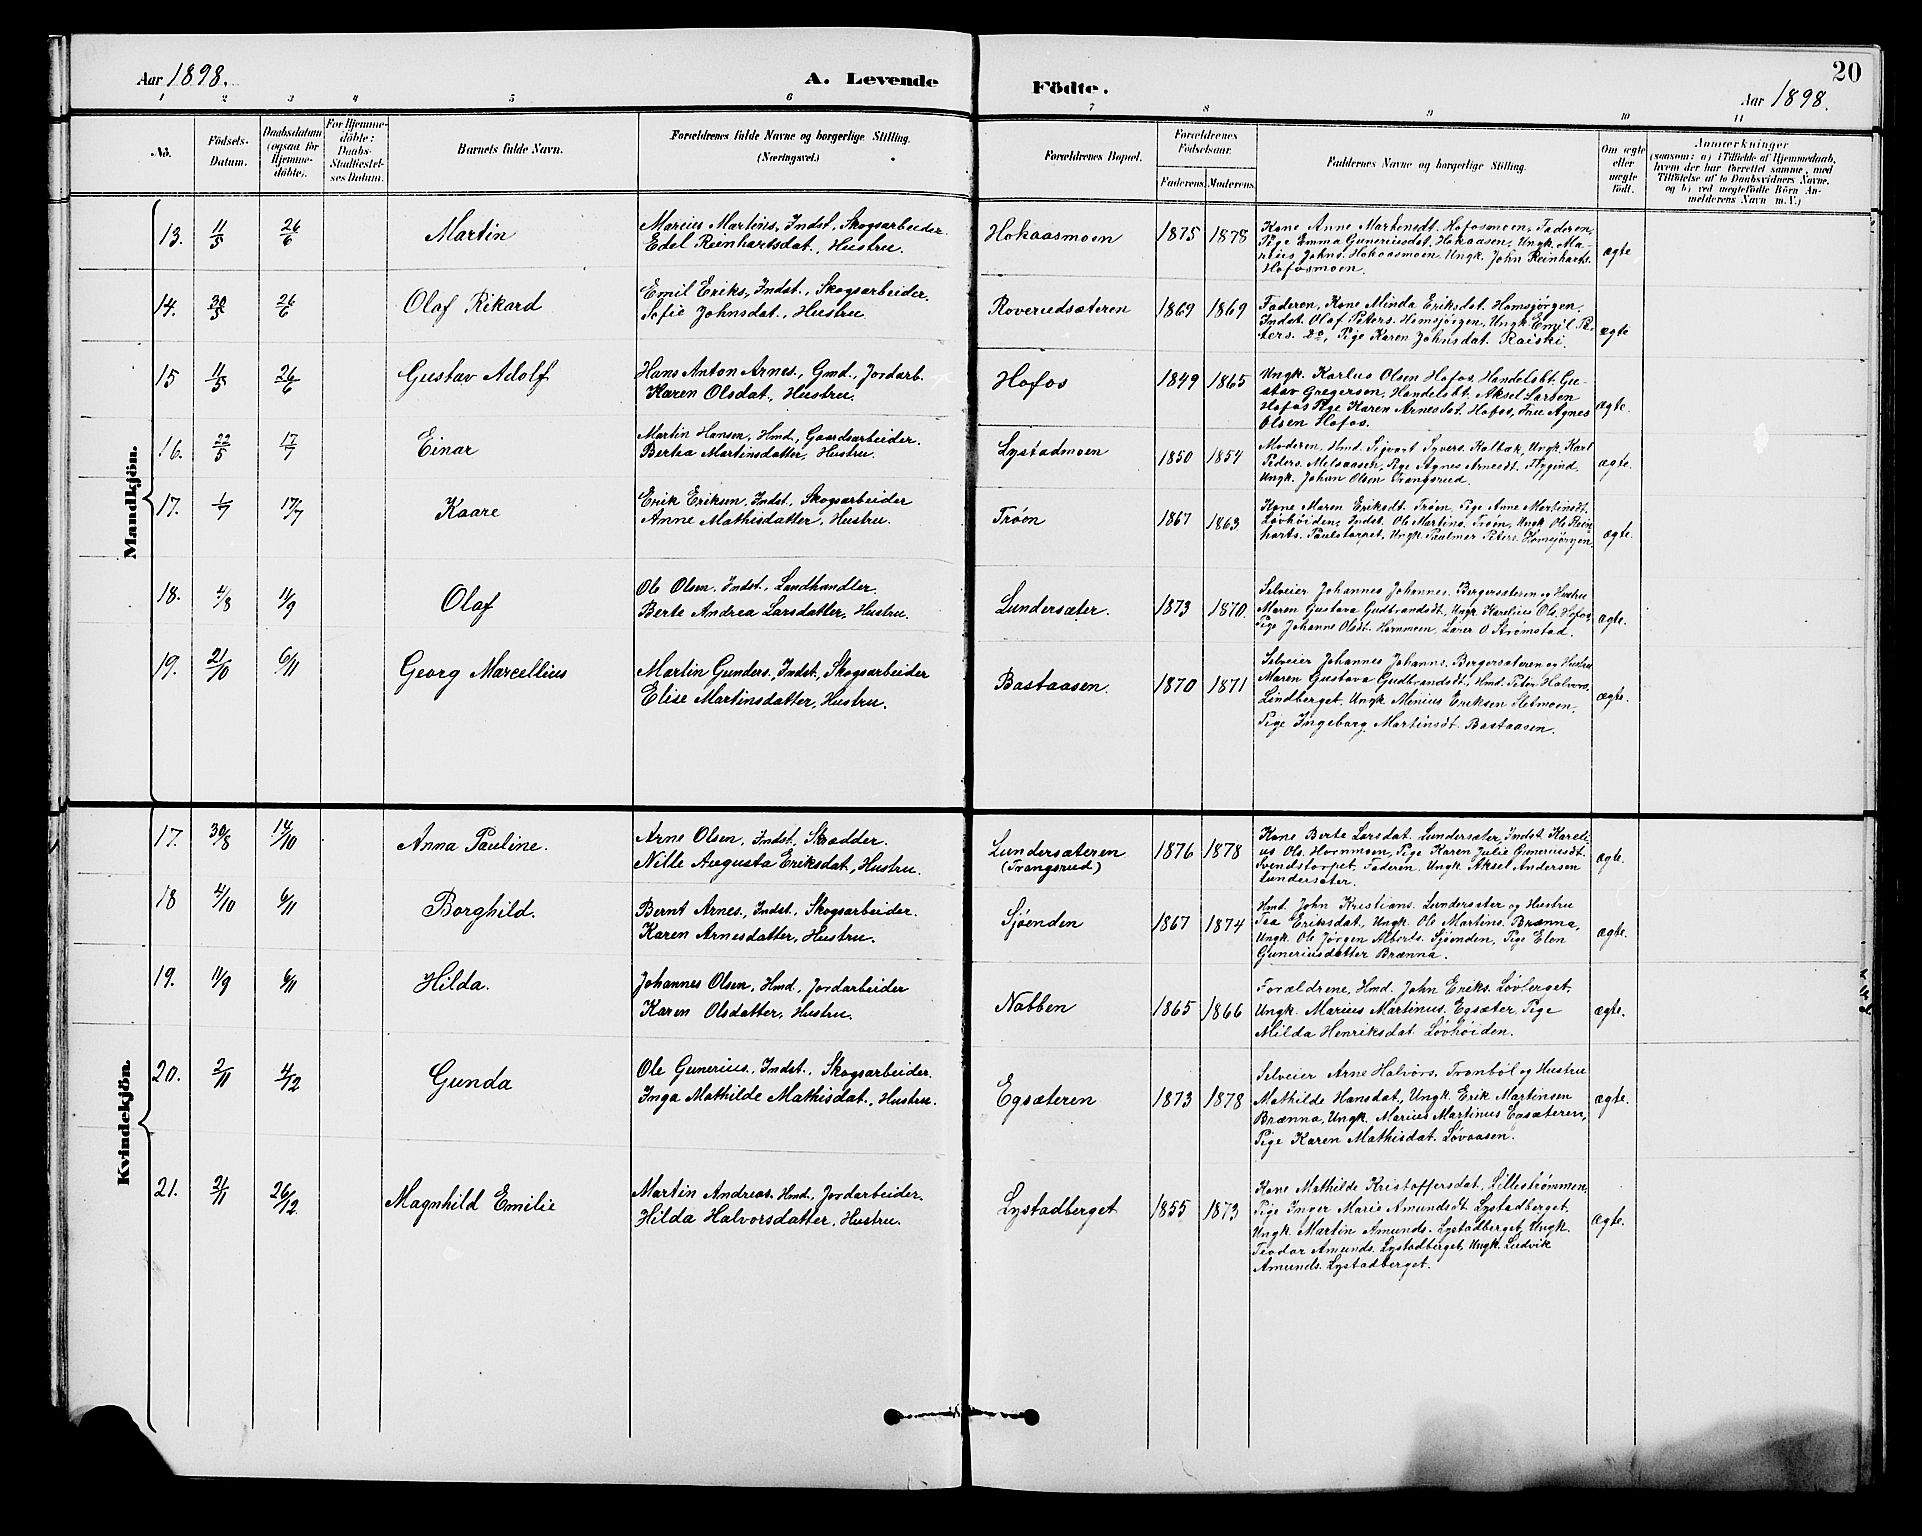 Aar 1898.
A. Levende Födte.
Aar 1898.
20
1 2 3 4 5 6 7 8 9 10 11
No.
Födsels-Datum.
Daabsdatum (ogsaa for Hjemmedöbte).
For Hjemmedöbte: Daabs-Stadfæstelses Datum.
Barnets fulde Navn.
Forældrenes fulde Navne og borgerlige Stilling. (Næringsvei.)
Forældrenes Bopæl.
Forældrenes Födselsaar.
Faderens. Moderens.
Faddernes Navne og borgerlige Stilling.
Om ægte eller uægte födt.
Anmærkninger
(saasom: a) i Tilfælde af Hjemmedaab, hvem der har forrettet samme, med Tilföielse af to Daabsvidners Navne, og b) ved uægtefödte Börn Anmelderens Navn m. V.)
Mandkjön.
13. 11/5 26/6 Martin
Marius Martins., Indst., Skogsarbeider.
Edel Reinhartsdat., Hustru.
Hokaasmoen 1875 1878
Kone Anne Martensdt. Hofosmoen, Faderen,
Pige Emma Guneriusdat. Hokaasen, Ungk. Ma-
rius Johns. Hokaasmoen. Ungk. John Reinharts.
Hofosmoen.
ægte
14. 30/5 26/6 Olaf Rikard
Emil Eriks., Indst., Skogsarbeider.
Sofie Johnsdat., Hustru.
Roverudsæteren 1869 1869
Faderen, Kone Minda Eriksdat. Homsjørgen,
Indst. Olaf Peters. Homsjørgen, Ungk. Emil Pe-
ters. do, Pige Karen Johnsdat. Raiski.
ægte
15 11/5 26/6 Gustav Adolf
Hans Anton Arnes., Gmd., Jordarb.
Karen Olsdat., Hustru.
Hofos 1849 1865
Ungk. Karlus Olsen Hofos, Handelsbt. Gu-
stav Gregersen, Handelsbt. Aksel Larsen
Hofos Pige Karen Arnesdat. Hofos, Frue Agnes
Olsen Hofos.
ægte.
16. 22/5 17/7 Einar
Martin Hansen, Hmd., Gaardsarbeider.
Bertea Martinsdatter, Hustru.
Lystadmoen 1850 1854
Moderen, Hmd. Sigvart Syvers. Kalbak, Ungk. Karl
Peders. Melaasen, Pige Agnes Arnesdt. Flygind,
Ungk. Johan Olsen Trangsrud.
ægte.
17. 1/7 17/7 Kaare
Erik Eriksen, Indst., Skogsarbeider
Anne Mathisdatter, Hustru.
Trøen 1867 1863
Kone Maren Eriksdt. Trøen, Pige Anne Martinsdt.
Løvhøiden, Indst. Ole Martins. Trøen, Ungk. Ole Rein-
harts. Paulstorpet, Ungk. Paulmer Peters. Homsjørgen.
ægte.
18. 4/8 11/9 Olaf
Ole Olsen, Indst., Landhandler.
Berte Andrea Larsdatter, Hustru.
Lundersæter 1873 1870.
Selveier Johannes Johannes. Bergersæteren og Hustru
Maren Gustava Gudbrandsdt., Ungk. Karelius Ols. Hofos,
Pige Johanne Olsdt. Hornmoen, Lærer O Strømstad.
ægte.
19. 21/10 6/11 Georg Marcellius
Martin Gunders., Indst., Skogsarbeider
Elise Martinsdatter, Hustru.
Bastaasen. 1870 1871
Selveier Johannes Johanns. Bergersæteren og Hustru
Maren Gustava Gudbrandsdt., Hmd. Peter Halvors.
Lindberget, Ungk. Menius Eriksen Stetmoen,
Pige Ingeborg Martinsdt. Bastaasen.
ægte.
Kvindekjön.
17. 30/8 14/10 Anna Pauline.
Arne Olsen, Indst., Skrædder.
Nille Augusta Eriksdat., Hustru.
Lundersæteren
(Trangsrud)
1876 1878
Kone Berte Larsdat. Lundersæter, Indst. Kareli-
us Ols. Hornmoen, Pige Karen Julie Guneriusdt.
Svendstorpet, Faderen. Ungk. Aksel Andersen
Lundersæter.
ægte.
18 4/10 6/11 Borghild.
Bernt Arnes., Indst., Skogsarbeider.
Karen Arnesdatter, Hustru.
Sjøenden 1867 1874
Hmd. John Kristians. Lundersæter og Hustru
Tea Eriksdat., Ungk. Ole Martins. Brænna,
Ungk. Ole Jørgen Alberts. Sjøenden, Pige Elen
Guneriusdatter Brænna.
ægte.
19. 11/9 6/11 Hilda.
Johannes Olsen, Hmd., Jordarbeider
Karen Olsdatter, Hustru.
Nabben 1865 1866
Forældrene, Hmd. John Eriks. Løvberget,
Ungk. Marius Martinus. Egsæter, Pige
Milda Henriksdat. Løvhøiden.
ægte.
20. 2/11 4/12 Gunda
Ole Gunerius., Indst., Skogsarbeider.
Inga Mathilde Mathisdat., Hustru.
Egsæteren 1873 1878
Selveier Arne Halvors. Tronbøl og Hustru
Mathilde Hansdat., Ungk. Erik Martinsen
Brænna, Ungk. Marius Martinus Egsæteren,
Pige Karen Mathisdat. Løvaasen.
ægte.
21. 21/11 26/12 Magnhild Emilie
Martin Andreas. Hmd., Jordarbeider.
Hilda Halvorsdatter, Hustru.
Lystadberget 1855 1873
Kone Mathilde Kristoffersdat., Lillestrømmen,
Pige Inger Marie Amundsdt. Lystadberget,
Ungk. Martin Amunds. Lystadberget, Ungk.
Teodor Amunds. Lystadberget, Ungk. Ludvik
Amunds. Lystadberget.
ægte.